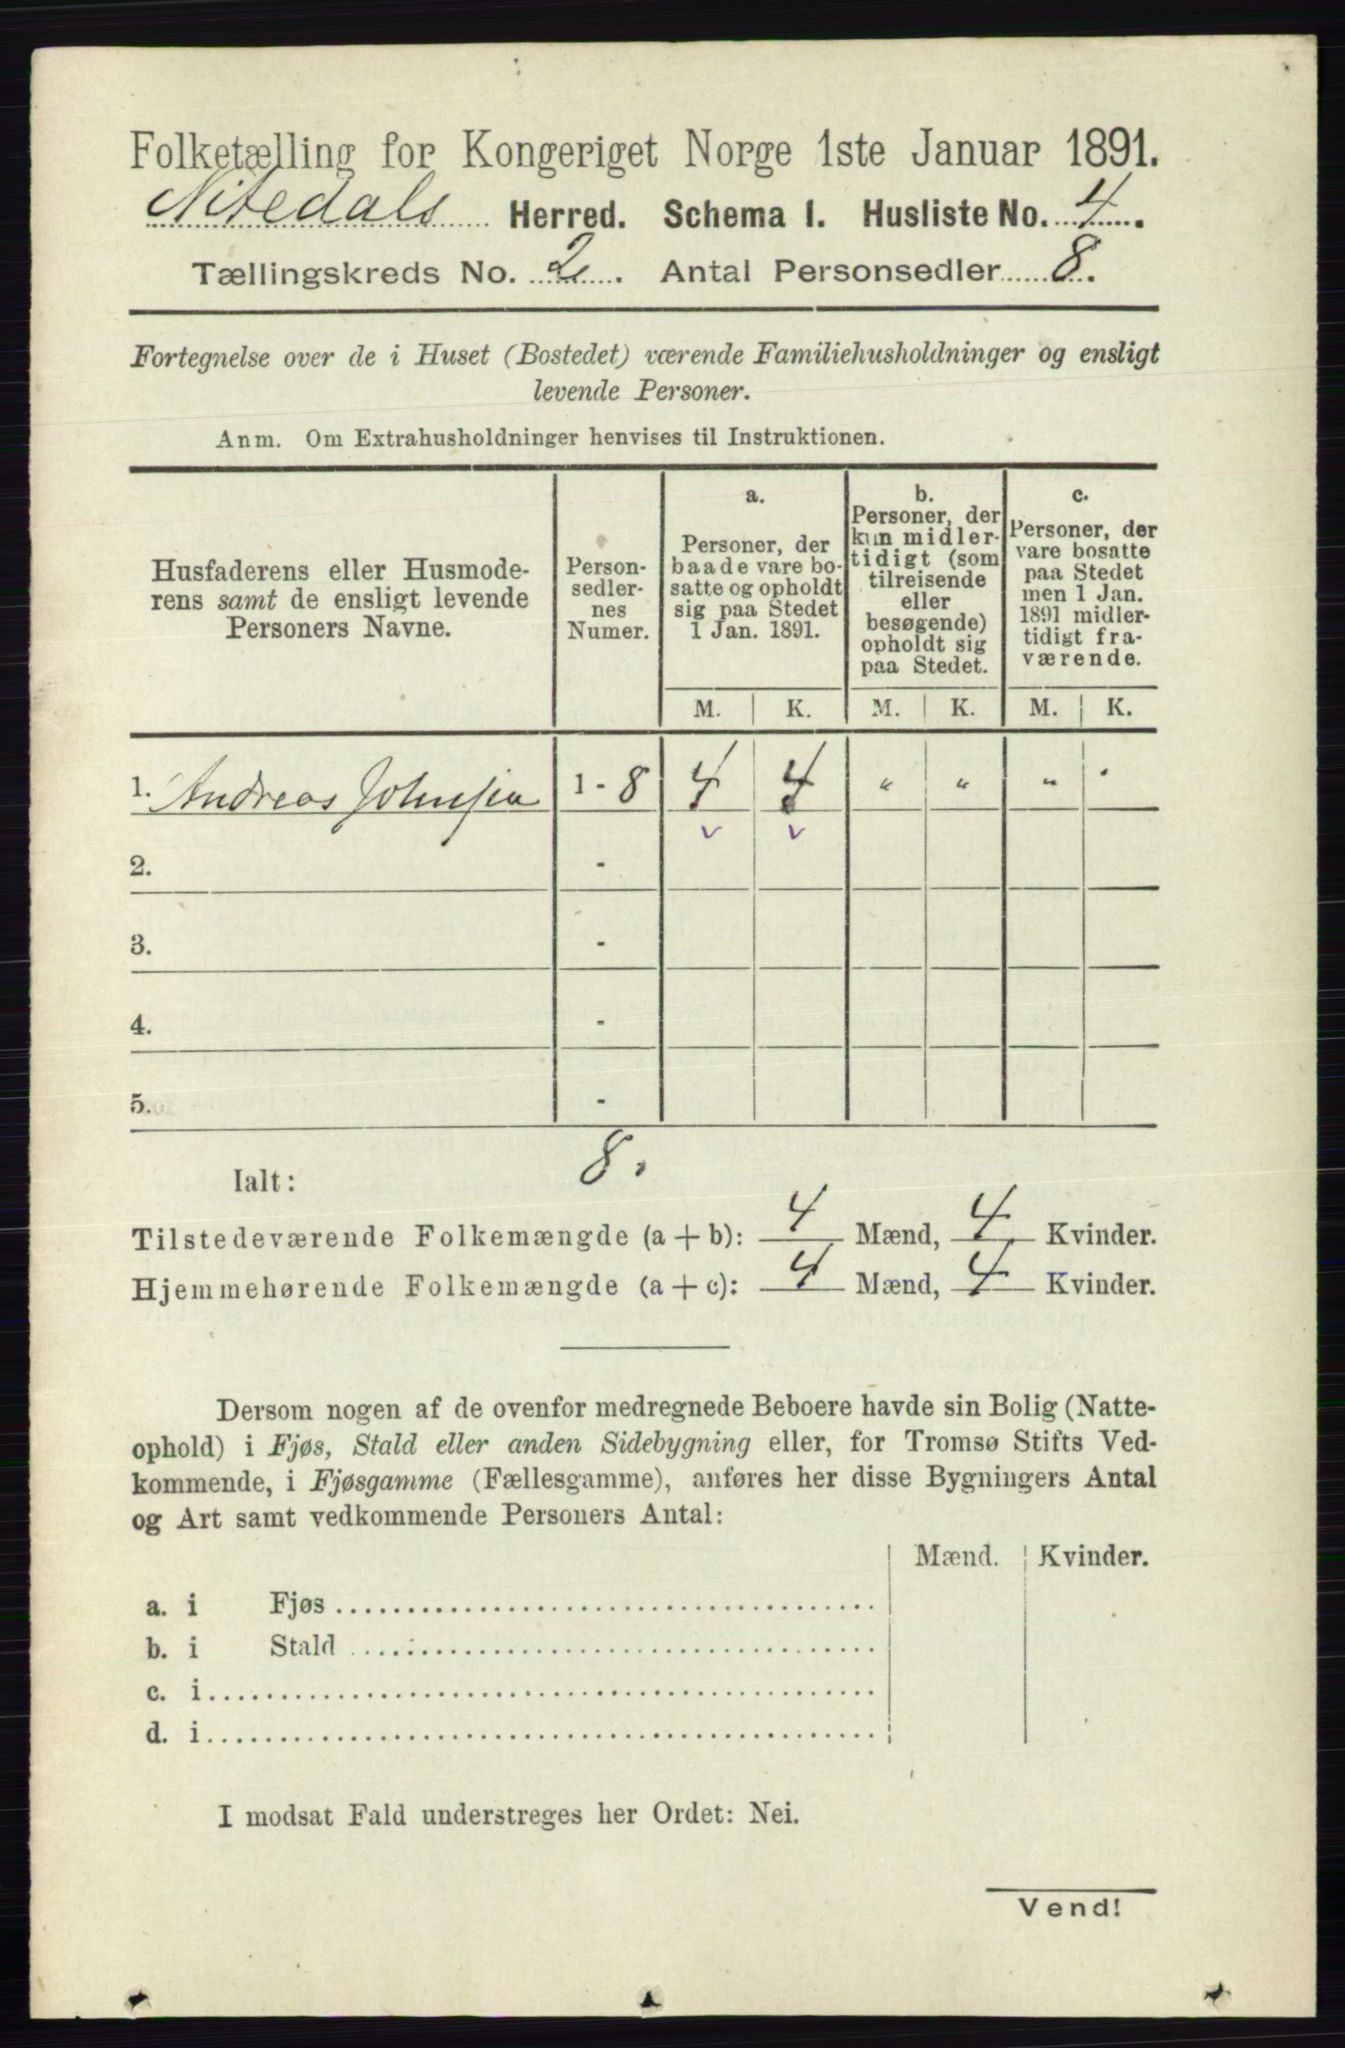 Folketælling for Kongeriget Norge 1ste Januar 1891.
Nitedals Herred. Schema 1. Husliste No. 4.
Tællingskreds No. 2. Antal Personsedler 8.
Fortegnelse over de i Huset (Bostedet) værende Familiehusholdninger og ensligt
levende Personer.
Anm. Om Extrahusholdninger henvises til Instruktionen.
Husfaderens eller Husmode-
rens samt de ensligt levende
Personers Navne.
Person-
sedler-
nes
Numer.
a.
Personer, der
baade vare bo-
satte og opholdt
sig paa Stedet
1 Jan. 1891.
b.
Personer, der
kun midler-
tidigt (som
tilreisende
eller
besøgende)
opholdt sig
paa Stedet.
c.
Personer, der
vare bosatte
paa Stedet
men 1 Jan.
1891 midler-
tidigt fra-
værende.
M. K. M. K. M. K.
1. Andreas Johnsen 1 - 8 4 4 " " " "
v v
2. -
3. -
4. -
5. -
Ialt: 8.
Tilstedeværende Folkemængde (a + b): 4 Mænd, 4 Kvinder.
Hjemmehørende Folkemængde (a + c): 4 Mænd, 4 Kvinder.
Dersom nogen af de ovenfor medregnede Beboere havde sin Bolig (Natte-
ophold) i Fjøs, Stald eller anden Sidebygning eller, for Tromsø Stifts Ved-
kommende, i Fjøsgamme (Fællesgamme), anføres her disse Bygningers Antal
og Art samt vedkommende Personers Antal:
Mænd. Kvinder.
a. i Fjøs
b. i Stald
c. i
d. i
I modsat Fald understreges her Ordet: Nei.
Vend!